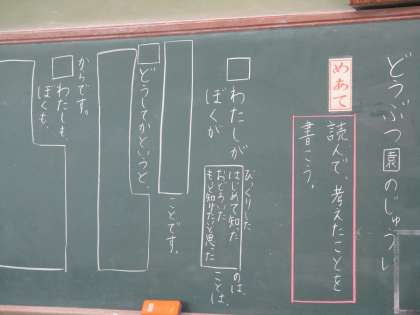 どうぶつ園のじゅうい
めあて
読んで、考えたことを
書こう。
わたしが
ぼくが
びっくりした
はじめて知った
おどろいた
もっと知りたいと思った
のは、
ことは、
ことです。
どうしてかというと、
からです。
わたしも、
ぼくも、